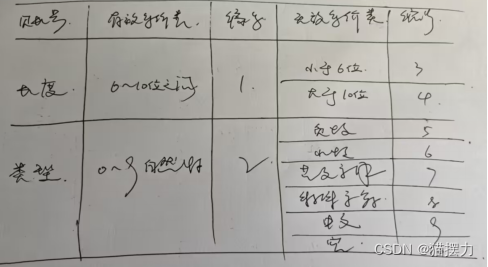 有效等价类 编号 无效等价类 编号
长度 6~10位之间 1. 小于6位 3
大于10位 4
类型 0~9自然数 2 负数 5
小数 6
英文字母 7
特殊字符 8
中文 9
空
CSDN @猫摆力